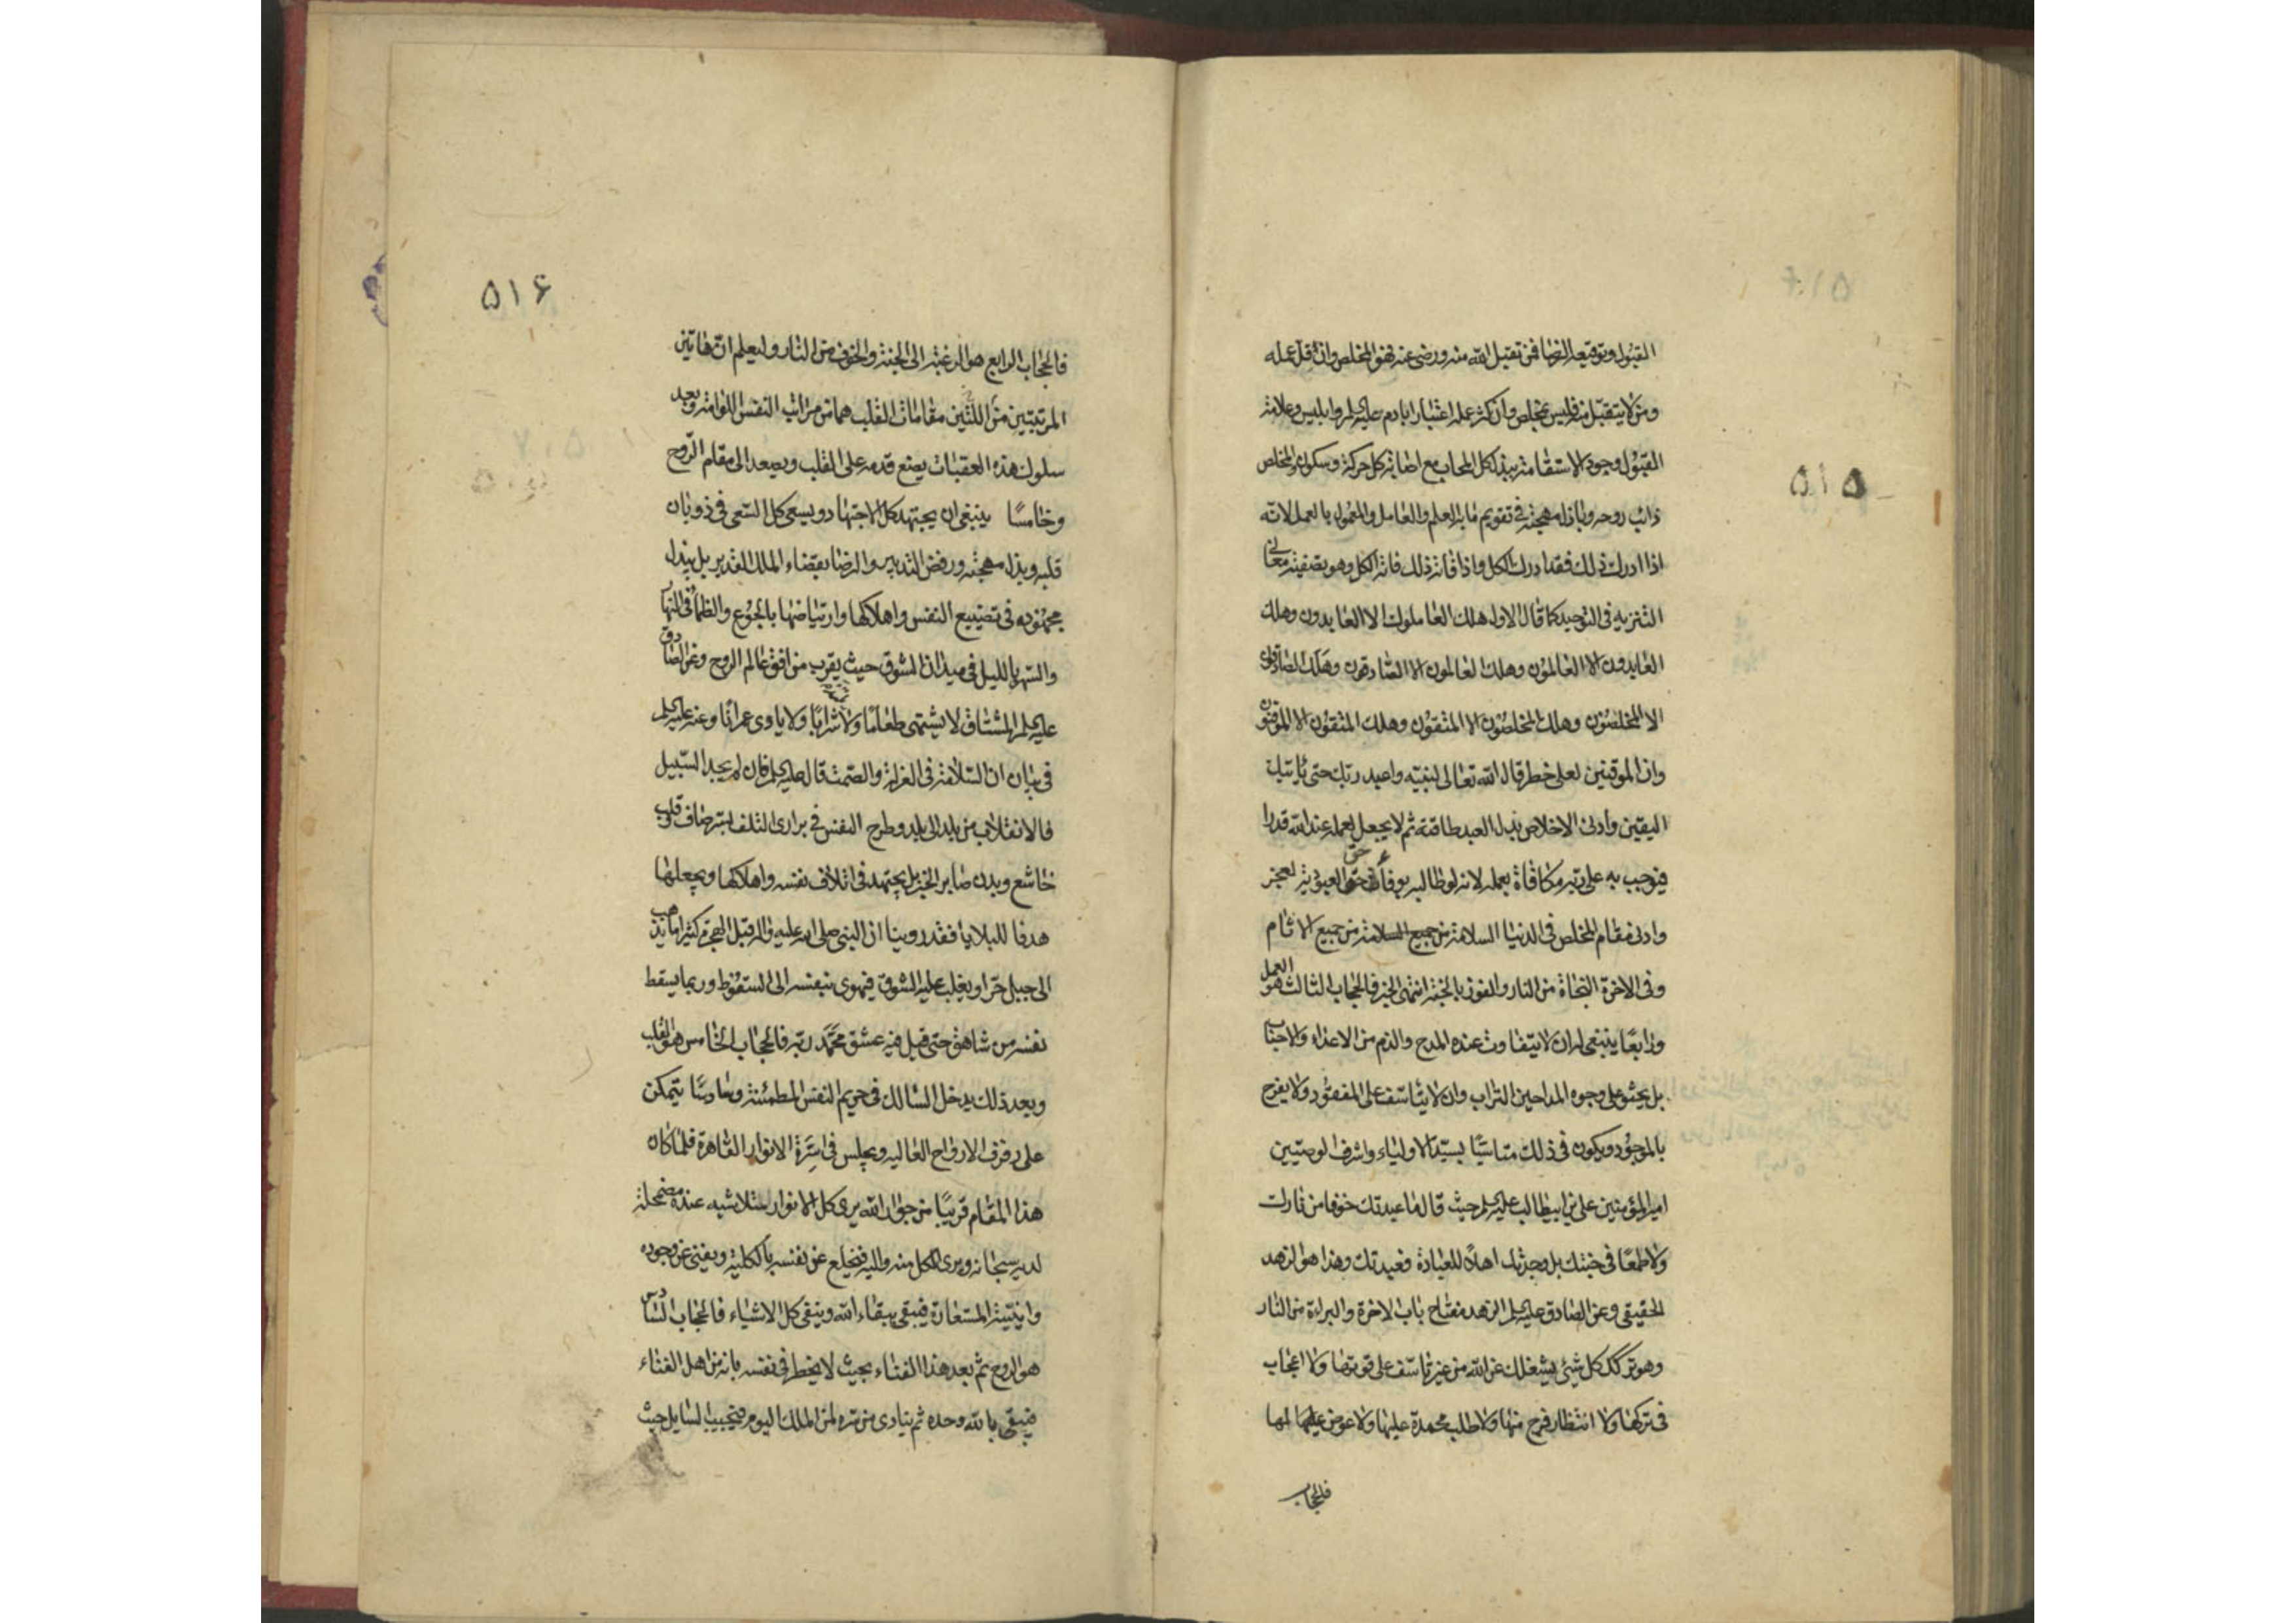 ۵۱۵
القبول وتوقيعه الرضا فمن تقبل الله منه ورضى عنه فهو المخلص وان قل عمله
ومن لا يتقبل منه فليس بمخلص وان كثر عمله اعتبارا بادم عليه السلم وابليس وعلامة
القبول وجود الاستقامة ببذل كل المحاب مع اصابة كل حركة وسكون والمخلص
ذائب روحه وباذل مهجته فى تقويم ما به العلم والعامل والمعمول بالعمل لانه
اذا ادرك ذلك فقد ادرك الكل واذا فاته ذلك فاته الكل وهو تصفية معانى
التنزيه فى التوحيد كما قال الاول هلك العاملون الا العابدون وهلك
العابدون الا العالمون وهلك العالمون الا الصادقون وهلك الصادقون
الا المخلصون وهلك المخلصون الا المتقون وهلك المتقون الا الموقنون
وان الموقنين لعلى خطر قال الله تعالى لنبيه واعبد ربك حتى ياتيك
اليقين وأدنى الاخلاص بذل العبد طاقته ثم لا يجعل لعمله عند الله قدرا
فيوجب به على ربه مكافاة بعمله لانه لو طالبه بوفاء حق العبودية لعجز
وادنى مقام المخلص فى الدنيا السلامة من جميع الاثام
وفى الاخرة النجاة من النار والفوز بالجنة انتهى الخبر فالحجاب الثالث هو العمل
ورابعًا ينبغى له ان لا يتفاوت عنده المدح والذم من الاعداء والاحباب
بل يحثو على وجوه المداحين التراب وان لا يتأسف على المفقود ولا يفرح
بالموجود ويكون فى ذلك متاسيًا بسيد الاولياء واشرف الوصيين
امير المؤمنين على بن ابيطالب عليه السلم حيث قال ما عبدتك خوفا من نارك
ولا طمعًا فى جنتك بل وجدتك اهلًا للعبادة فعبدتك وهذا هو الزهد
الحقيقى وعن الصادق عليه السلم الزهد مفتاح باب الاخرة والبراءة من النار
وهو ترك كل شيئ يشغلك عن الله من غير تأسف على فوتها ولا اعجاب
فى تركها ولا انتظار فرج منها ولا طلب محمدة عليها ولا عوض لها
فالحجاب
۵۱۶
فالحجاب الرابع هو الرغبة الى الجنة والخوف من النار وليعلم ان هاتين
المرتبتين من اللتين مقامات القلب هما من مراتب النفس اللوامة وبعد
سلوك هذه العقبات يضع قدمه على القلب ويصعد الى مقام الروح
وخامسًا ينبغى ان يجتهد كل الاجتهاد ويسعى كل السعى فى ذوبان
قلبه وبذل مهجته ورفض التدبير والرضا بقضاء الملك القدير بل يبذل
مجهوده فى تضييع النفس واهلاكها وارتياضها بالجوع والظمأ فى النهار
والسهر بالليل فى ميدان الشوق حيث يقرب من افق عالم الروح وعن الصادق
عليه السلم المشتاق لا يشتهى طعامًا ولا شرابًا ولا ياوى عمرانًا وعنه عليه السلم
فى بيان ان السلامة فى العزلة والصمت قال عليه السلم فان لم يجد السبيل
فالانقلاب من بلد الى بلد وطرح النفس فى برارى التلف بسر صاف وقلب
خاشع وبدن صابر الخبر بل يجتهد فى اتلاف نفسه واهلاكها ويجعلها
هدفا للبلايا فقد روينا ان النبى صلى الله عليه واله قبل الهجرة كثيرا ما يذهب
الى جبل حرا ويغلب عليه الشوق فيهوى بنفسه الى السقوط وربما يسقط
نفسه من شاهق حتى قيل فيه عشق محمد ربه فالحجاب الخامس هو القلب
وبعد ذلك يدخل السالك فى حريم النفس المطمئنة وسادسًا يتمكن
على رفرف الارواح العاليه ويجلس فى اسرة الانوار القاهرة فلما كان
هذا المقام قريبًا من جوار الله يرى كل الانوار متلاشيه عنده مضمحلة
لديه سبحانه ويرى الكل منه واليه فينخلع عن نفسه بالكلية ويفنى عن وجوده
وانيته المستعارة فيبقى ببقاء الله وينفى كل الاشياء فالحجاب السادس
هو الروح ثم بعد هذا الفناء بحيث لا يخطر فى نفسه بانه من اهل الفناء
فيبقى بالله وحده ثم ينادى من سره لمن الملك اليوم فيجيب السايل حيث